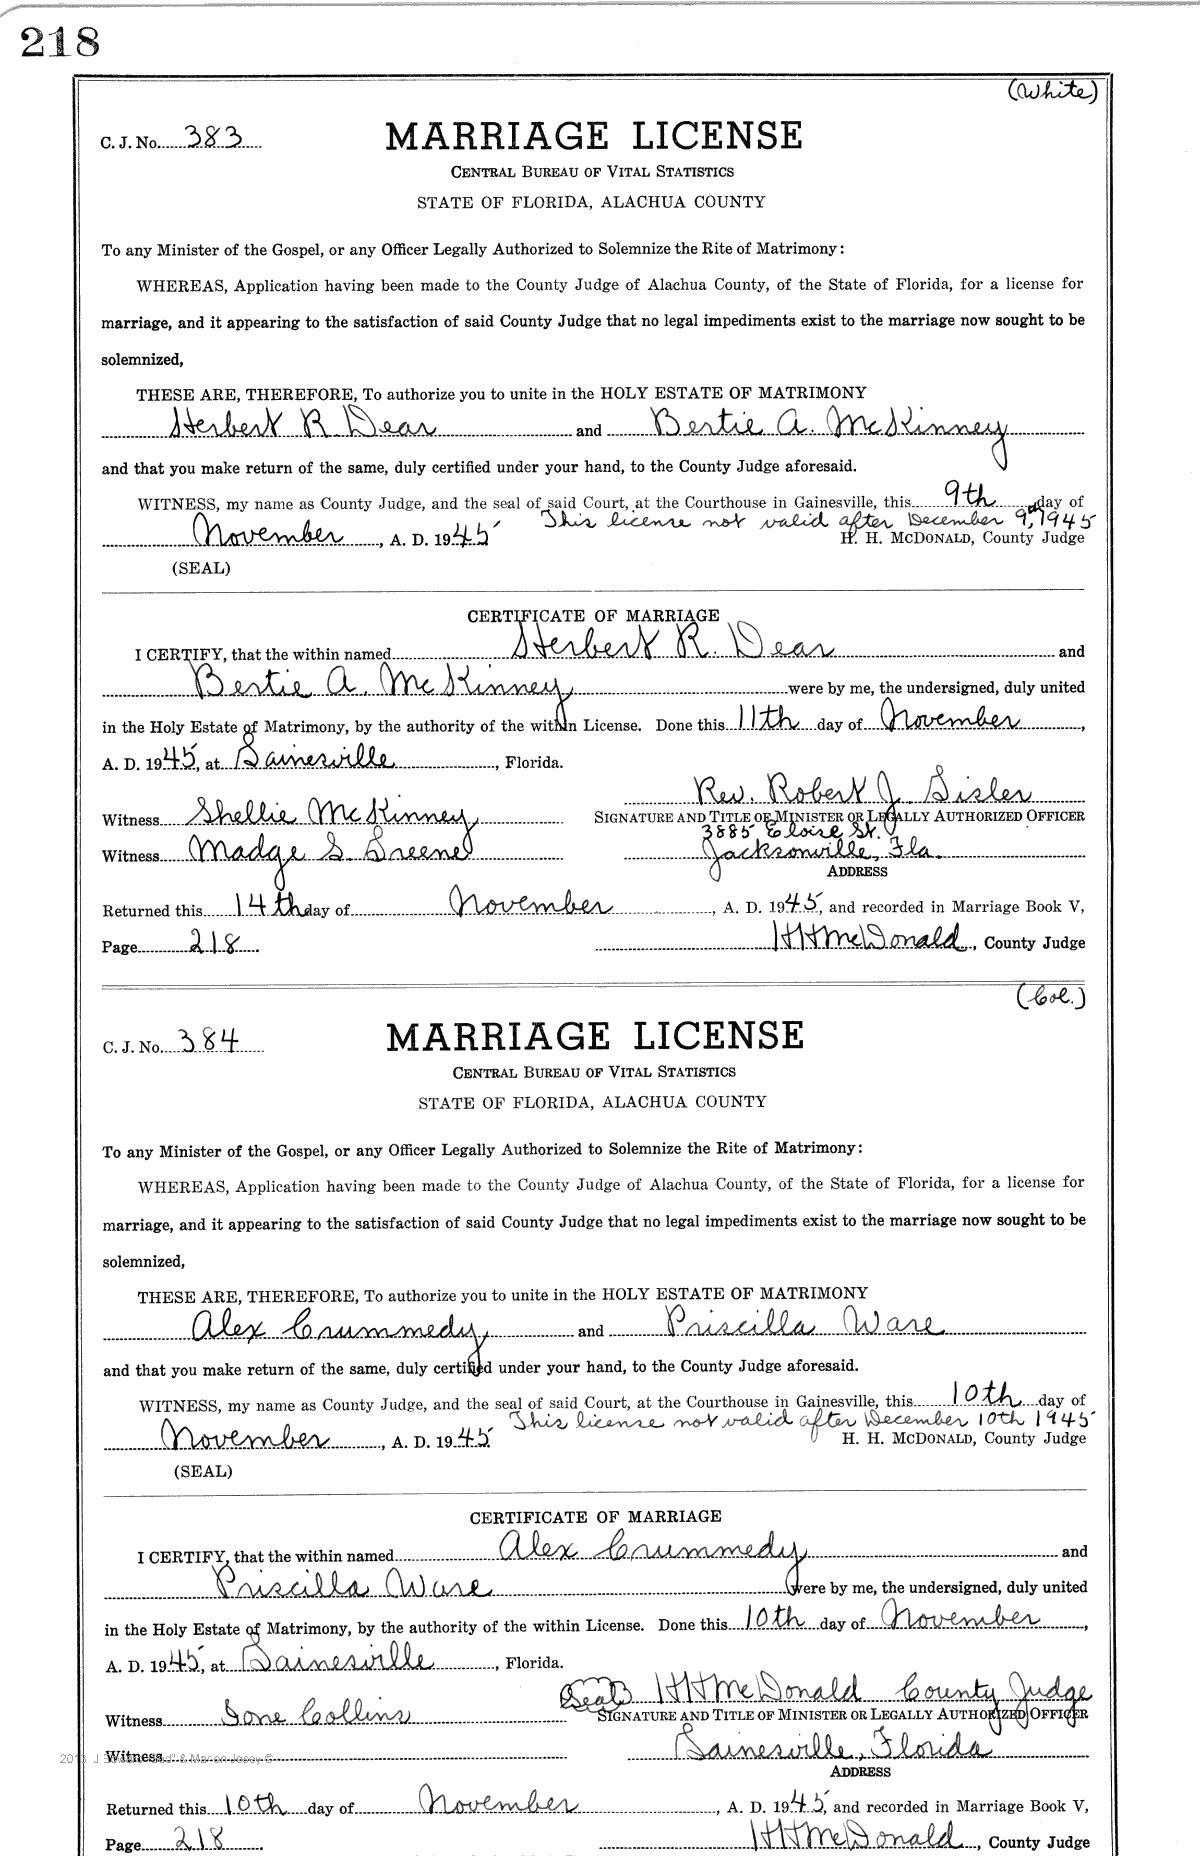 218
(White)
C. J. No. 383
MARRIAGE LICENSE
CENTRAL BUREAU OF VITAL STATISTICS
STATE OF FLORIDA, ALACHUA COUNTY
To any Minister of the Gospel, or any Officer Legally Authorized to Solemnize the Rite of Matrimony:
WHEREAS, Application having been made to the County Judge of Alachua County, of the State of Florida, for a license for
marriage, and it appearing to the satisfaction of said County Judge that no legal impediments exist to the marriage now sought to be
solemnized,
THESE ARE, THEREFORE, To authorize you to unite in the HOLY ESTATE OF MATRIMONY
Herbert R Dear and Bertie A. McKinney
and that you make return of the same, duly certified under your hand, to the County Judge aforesaid.
WITNESS, my name as County Judge, and the seal of said Court, at the Courthouse in Gainesville, this 9th day of
This license not valid after December 9th, 1945
November, A. D. 1945 H. H. McDONALD, County Judge
(SEAL)
CERTIFICATE OF MARRIAGE
I CERTIFY, that the within named Herbert R. Dear and
Bertie A. McKinney were by me, the undersigned, duly united
in the Holy Estate of Matrimony, by the authority of the within License. Done this 11th day of November,
A. D. 1945, at Gainesville, Florida.
Rev. Robert J. Gisler
Witness Shellie McKinney SIGNATURE AND TITLE OF MINISTER OR LEGALLY AUTHORIZED OFFICER
3885 Eloise St.
Witness Madge S. Greene Jacksonville, Fla.
ADDRESS
Returned this 14th day of November, A. D. 1945, and recorded in Marriage Book V,
Page 218 H H McDonald, County Judge
(Col.)
C. J. No. 384
MARRIAGE LICENSE
CENTRAL BUREAU OF VITAL STATISTICS
STATE OF FLORIDA, ALACHUA COUNTY
To any Minister of the Gospel, or any Officer Legally Authorized to Solemnize the Rite of Matrimony:
WHEREAS, Application having been made to the County Judge of Alachua County, of the State of Florida, for a license for
marriage, and it appearing to the satisfaction of said County Judge that no legal impediments exist to the marriage now sought to be
solemnized,
THESE ARE, THEREFORE, To authorize you to unite in the HOLY ESTATE OF MATRIMONY
Alex Crummedy and Priscilla Ware
and that you make return of the same, duly certified under your hand, to the County Judge aforesaid.
WITNESS, my name as County Judge, and the seal of said Court, at the Courthouse in Gainesville, this 10th day of
This license not valid after December 10th 1945
November, A. D. 1945 H. H. McDONALD, County Judge
(SEAL)
CERTIFICATE OF MARRIAGE
I CERTIFY, that the within named Alex Crummedy and
Priscilla Ware were by me, the undersigned, duly united
in the Holy Estate of Matrimony, by the authority of the within License. Done this 10th day of November,
A. D. 1945, at Gainesville, Florida.
(Seal) H H McDonald County Judge
Witness Ione Collins SIGNATURE AND TITLE OF MINISTER OR LEGALLY AUTHORIZED OFFICER
Witness Gainesville, Florida
ADDRESS
Returned this 10th day of November, A. D. 1945, and recorded in Marriage Book V,
Page 218 H H McDonald, County Judge